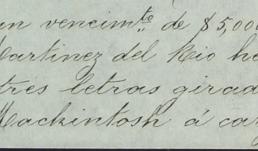 en vencimte de $5,000
Martinez del Rio h
tres letras girad
Mackintosh á car